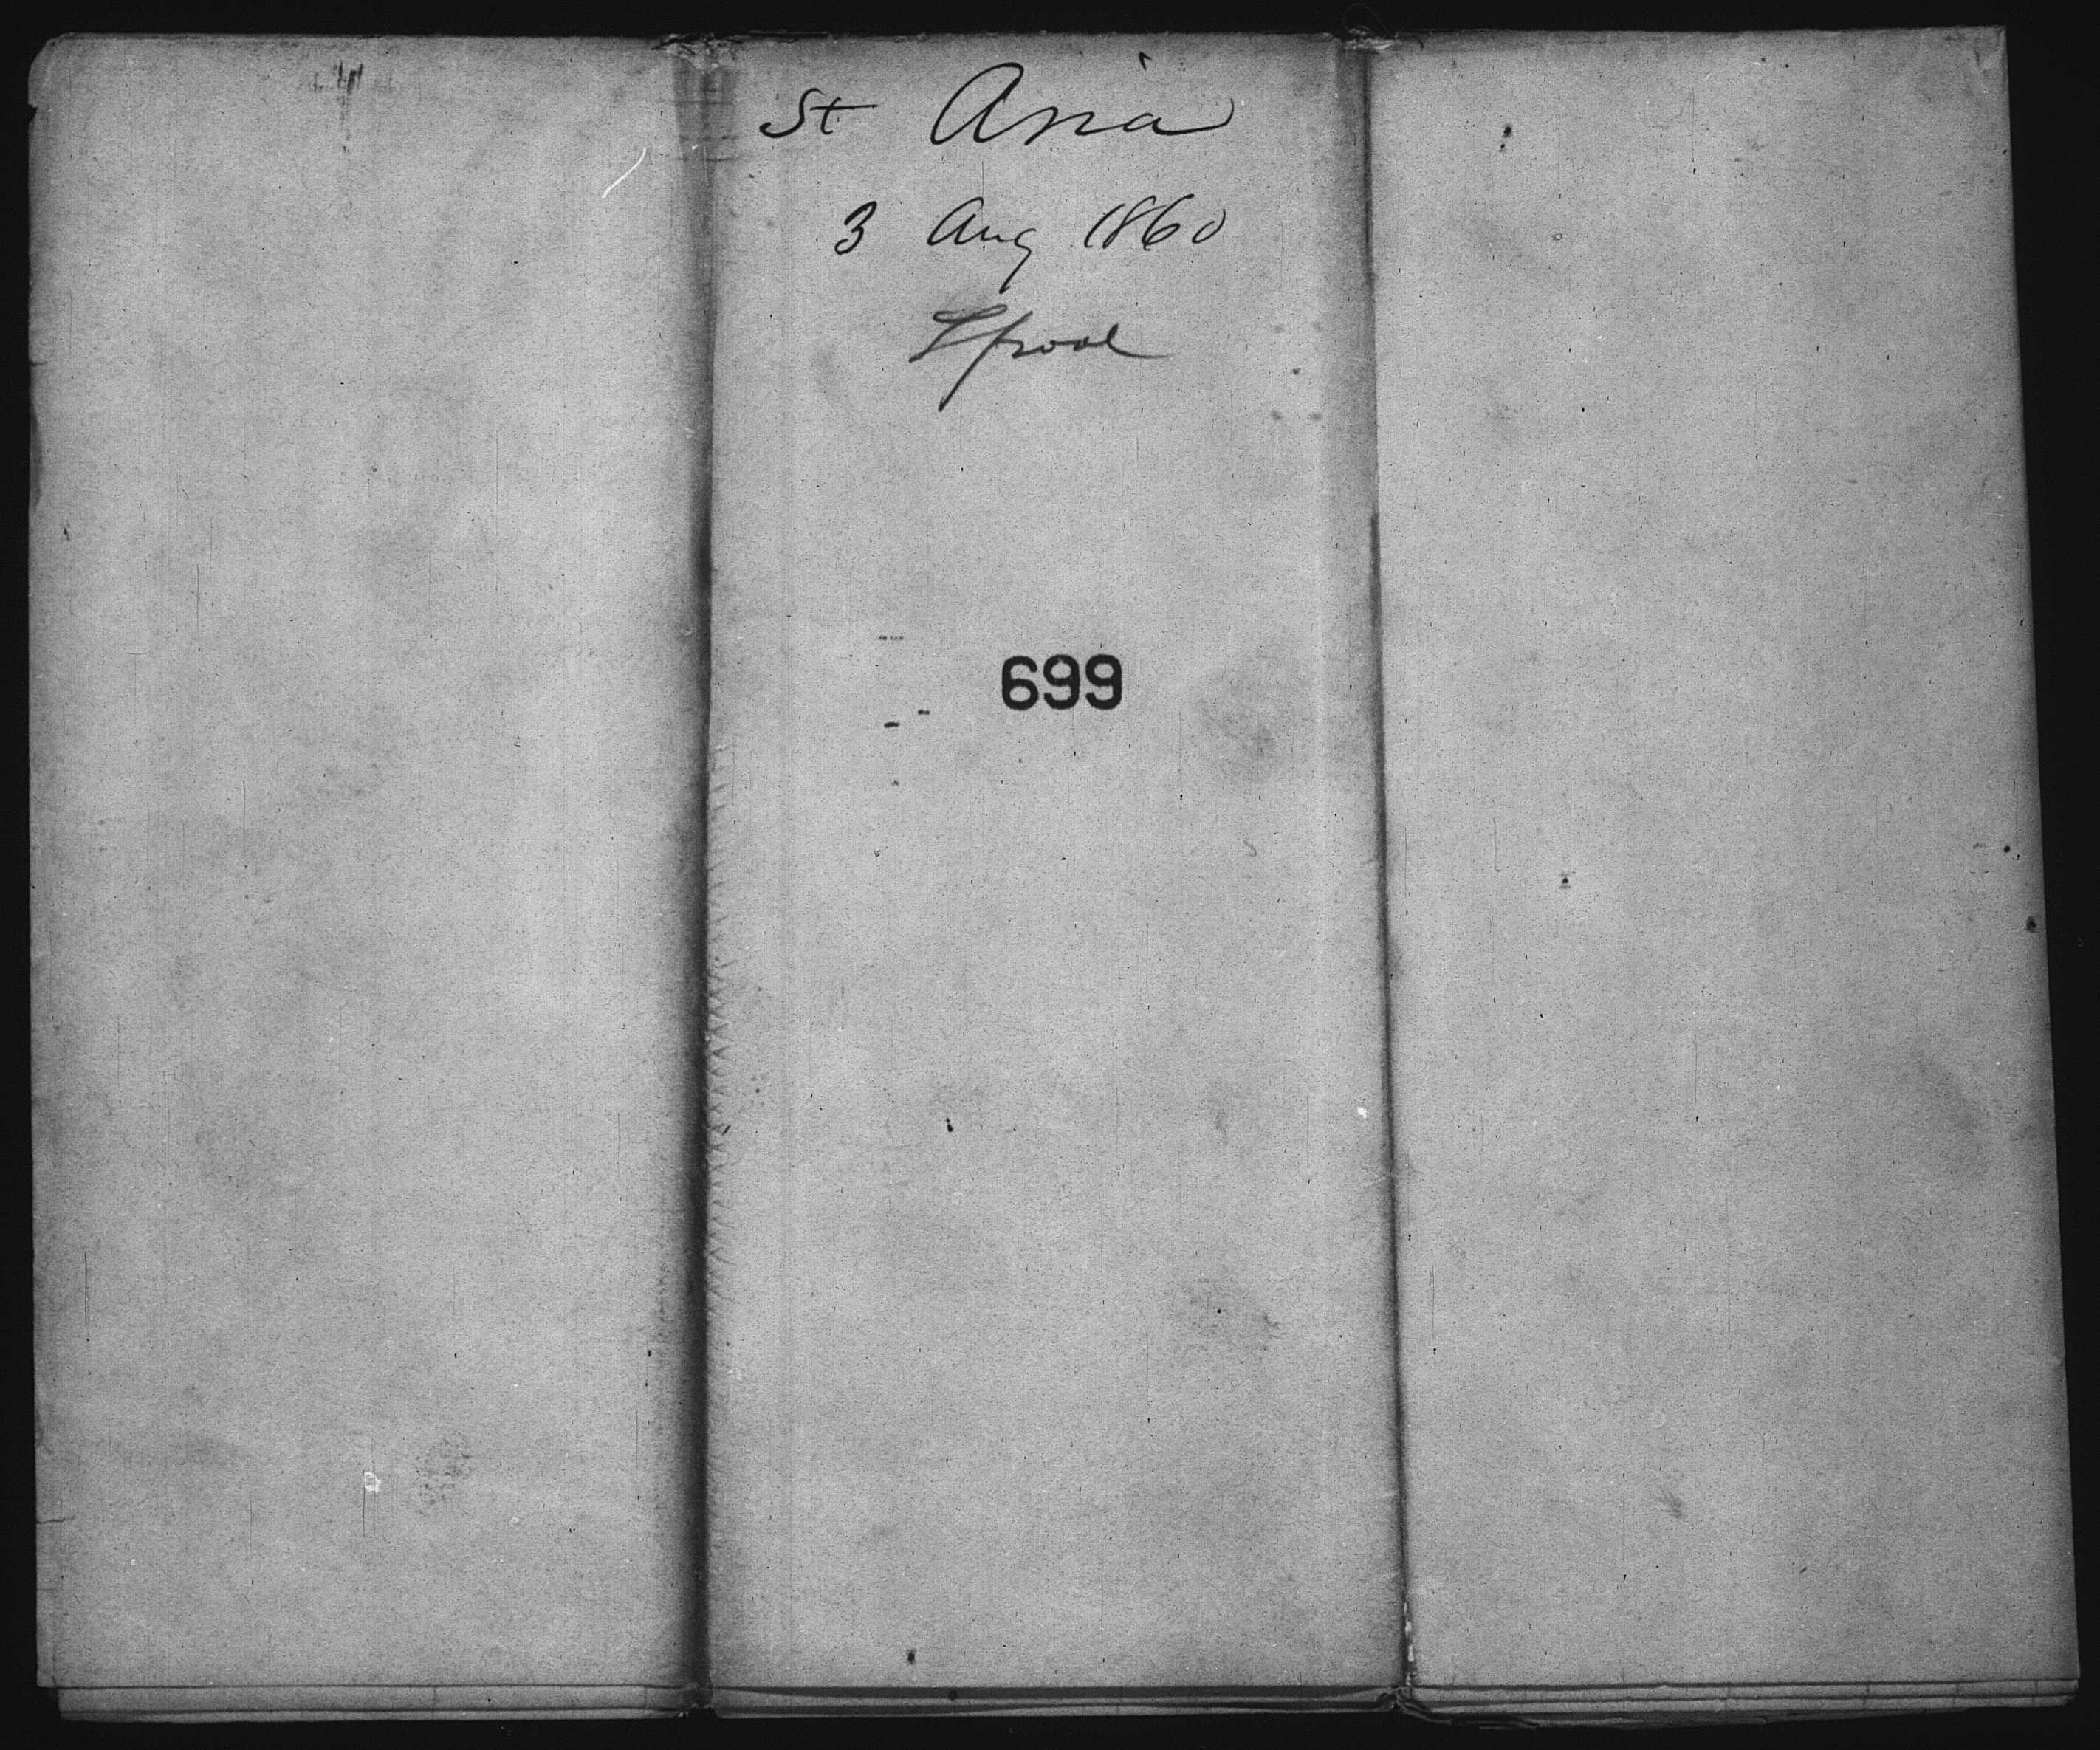 St Asia
3 Aug 1860
Lpool
699